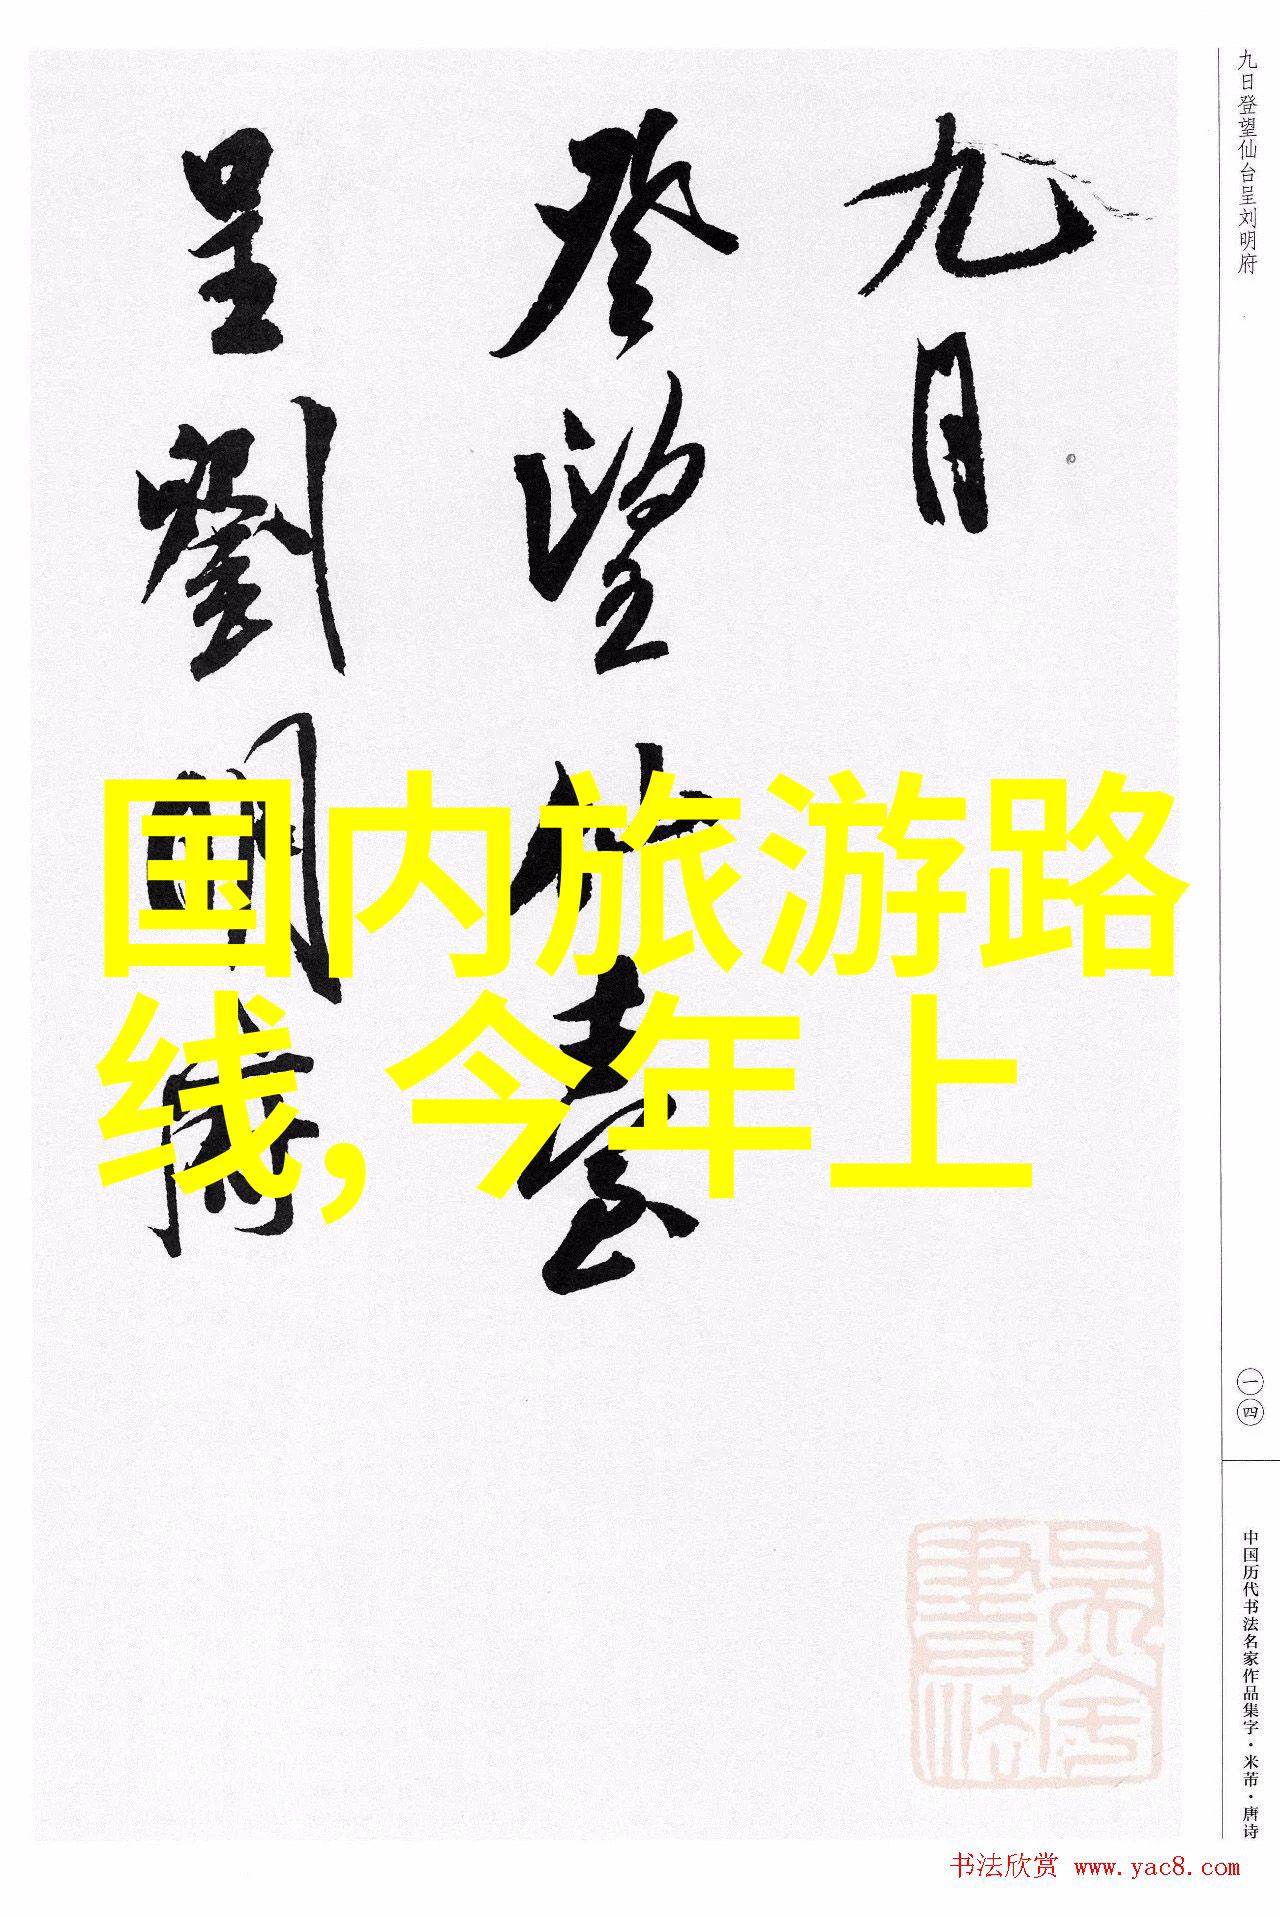 九日
登望仙臺
呈劉明府
国内旅游路
线,今年上
九日登望仙台呈刘明府
一四
中国历代书法名家作品集字·米芾·唐诗
书法欣赏 www.yac8.com